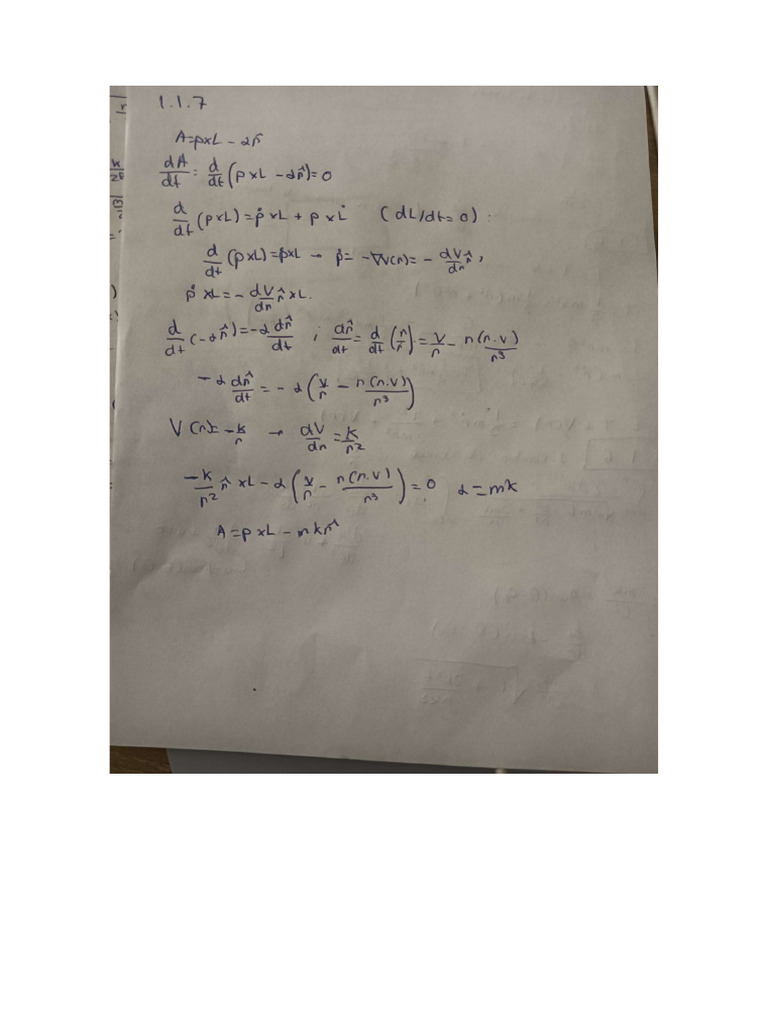 1.1.7
A=pxL - α r̂
dA/dt = d/dt (p xL - α r̂) = 0
d/dt (pxL) = ṗ xL + p x L̇ (dL/dt = 0) :
d/dt (pxL) = ṗxL → ṗ = -∇V(r) = - dV/dr r̂ ,
ṗ xL = - dV/dr r̂ xL.
d/dt (-α r̂) = -α dr̂/dt ; dr̂/dt = d/dt (r/r) = v/r - r(r.v)/r³
-α dr̂/dt = - α (v/r - r(r.v)/r³)
V(r) = -k/r → dV/dr = k/r²
-k/r² r̂ xL - α (v/r - r(r.v)/r³) = 0 α = mk
A = p xL - mk r̂